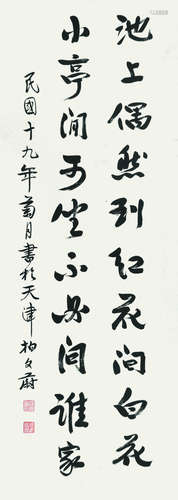 池上偶然到红花间白花
小亭闲可坐不必问谁家
民國十九年菊月書於天津柏文蔚